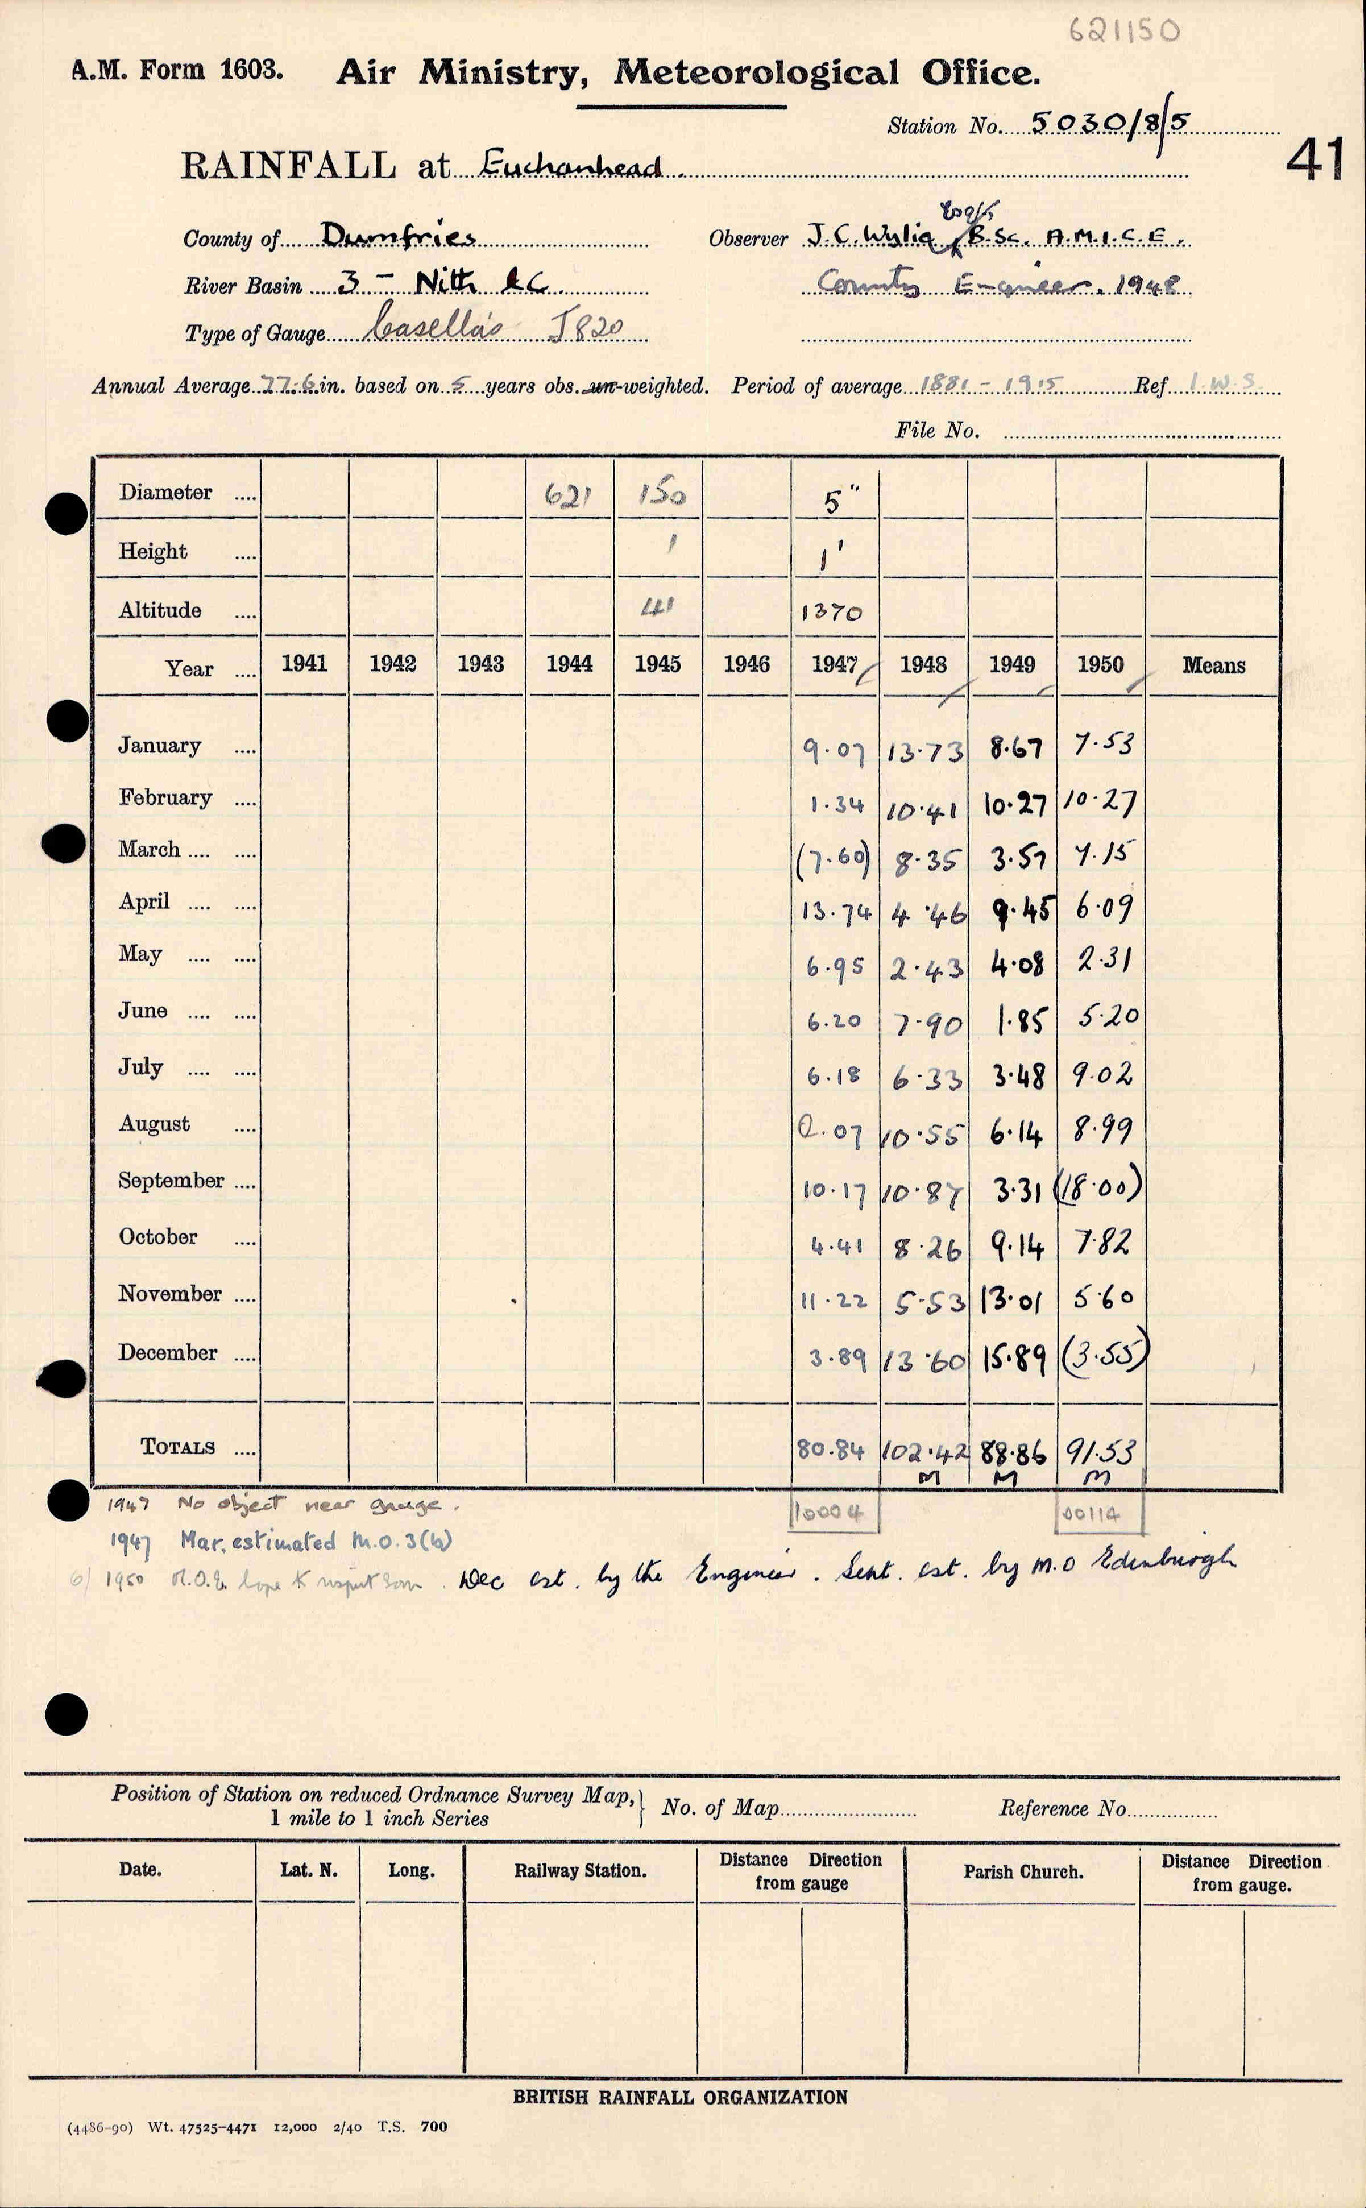 621150
A.M. Form 1603. Air Ministry, Meteorological Office.
Station No. 5030/8/5
41
RAINFALL at Euchanhead.
County of Dumfries Observer J.C. Wylie Esq/s B.Sc. A.M.I.C.E.
River Basin 3 - Nith &C. County Engineer. 1948
Type of Gauge Casella's J820
Annual Average 77.6 in. based on 5 years obs. un-weighted. Period of average 1881 - 1915 Ref I.W.S.
File No.
Diameter .... 621 150 5"
Height .... 1 1'
Altitude .... 41 1370
Year .... 1941 1942 1943 1944 1945 1946 1947 1948 1949 1950 Means
January .... 9.07 13.73 8.67 7.53
February .... 1.34 10.41 10.27 10.27
March .... .... (7.60) 8.35 3.57 7.15
April .... .... 13.74 4.46 9.45 6.09
May .... .... 6.95 2.43 4.08 2.31
June .... .... 6.20 7.90 1.85 5.20
July .... .... 6.18 6.33 3.48 9.02
August .... 0.07 10.55 6.14 8.99
September .... 10.17 10.87 3.31 (18.00)
October .... 4.41 8.26 9.14 7.82
November .... 11.22 5.53 13.01 5.60
December .... 3.89 13.60 15.89 (3.55)
TOTALS .... 80.84 102.42 88.86 91.53
M M M
10004 00114
1947 No object near gauge.
1947 Mar. estimated M.O.3(b)
6/ 1950 M.O.E. hope to inspect soon. Dec est. by the Engineer. Sept. est. by M.O Edinburgh
Position of Station on reduced Ordnance Survey Map, } No. of Map Reference No.
1 mile to 1 inch Series
Date. Lat. N. Long. Railway Station. Distance Direction from gauge Parish Church. Distance Direction from gauge.
BRITISH RAINFALL ORGANIZATION
(4486-90) Wt. 47525-4471 12,000 2/40 T.S. 700